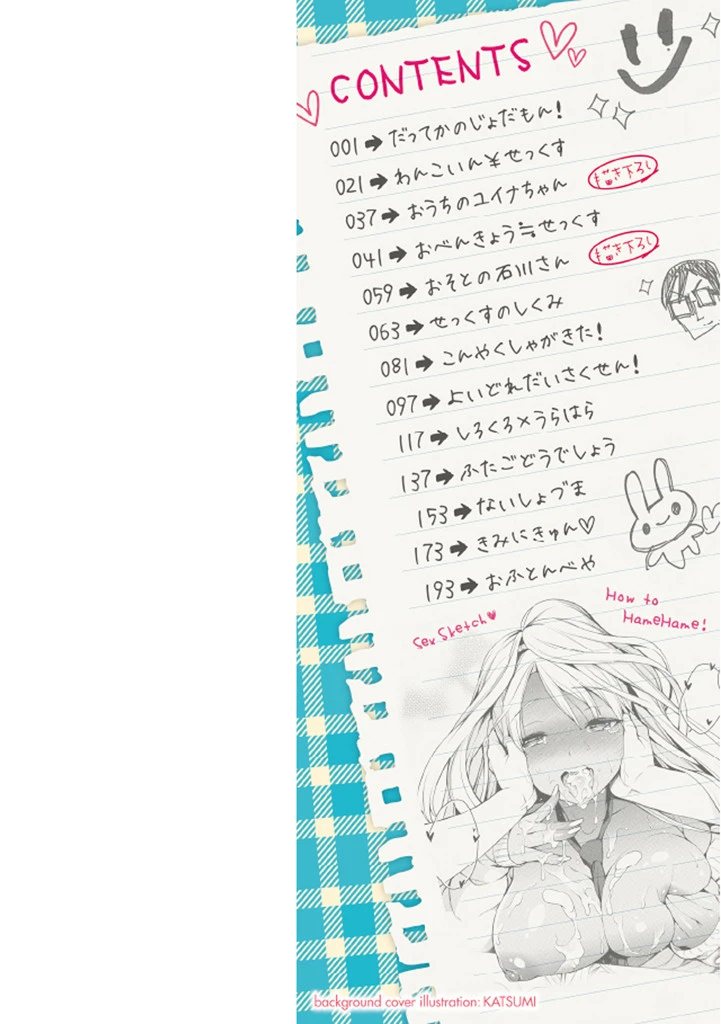 CONTENTS
001➡だってかのじょだもん!
021➡わんこいん¥せっくす
037➡おうちのユイナちゃん 描き下ろし
041➡おべんきょう≒せっくす
059➡おそとの石川さん 描き下ろし
063➡せっくすのしくみ
081➡こんやくしゃがきた!
097➡よいどれだいさくせん!
117➡しろくろ×うらはら
137➡ふたごどうでしょう
153➡ないしょづま
173➡きみにきゅん♡
193➡おふとんべや
Sex Sketch♥
How to
HameHame!
background cover illustration: KATSUMI